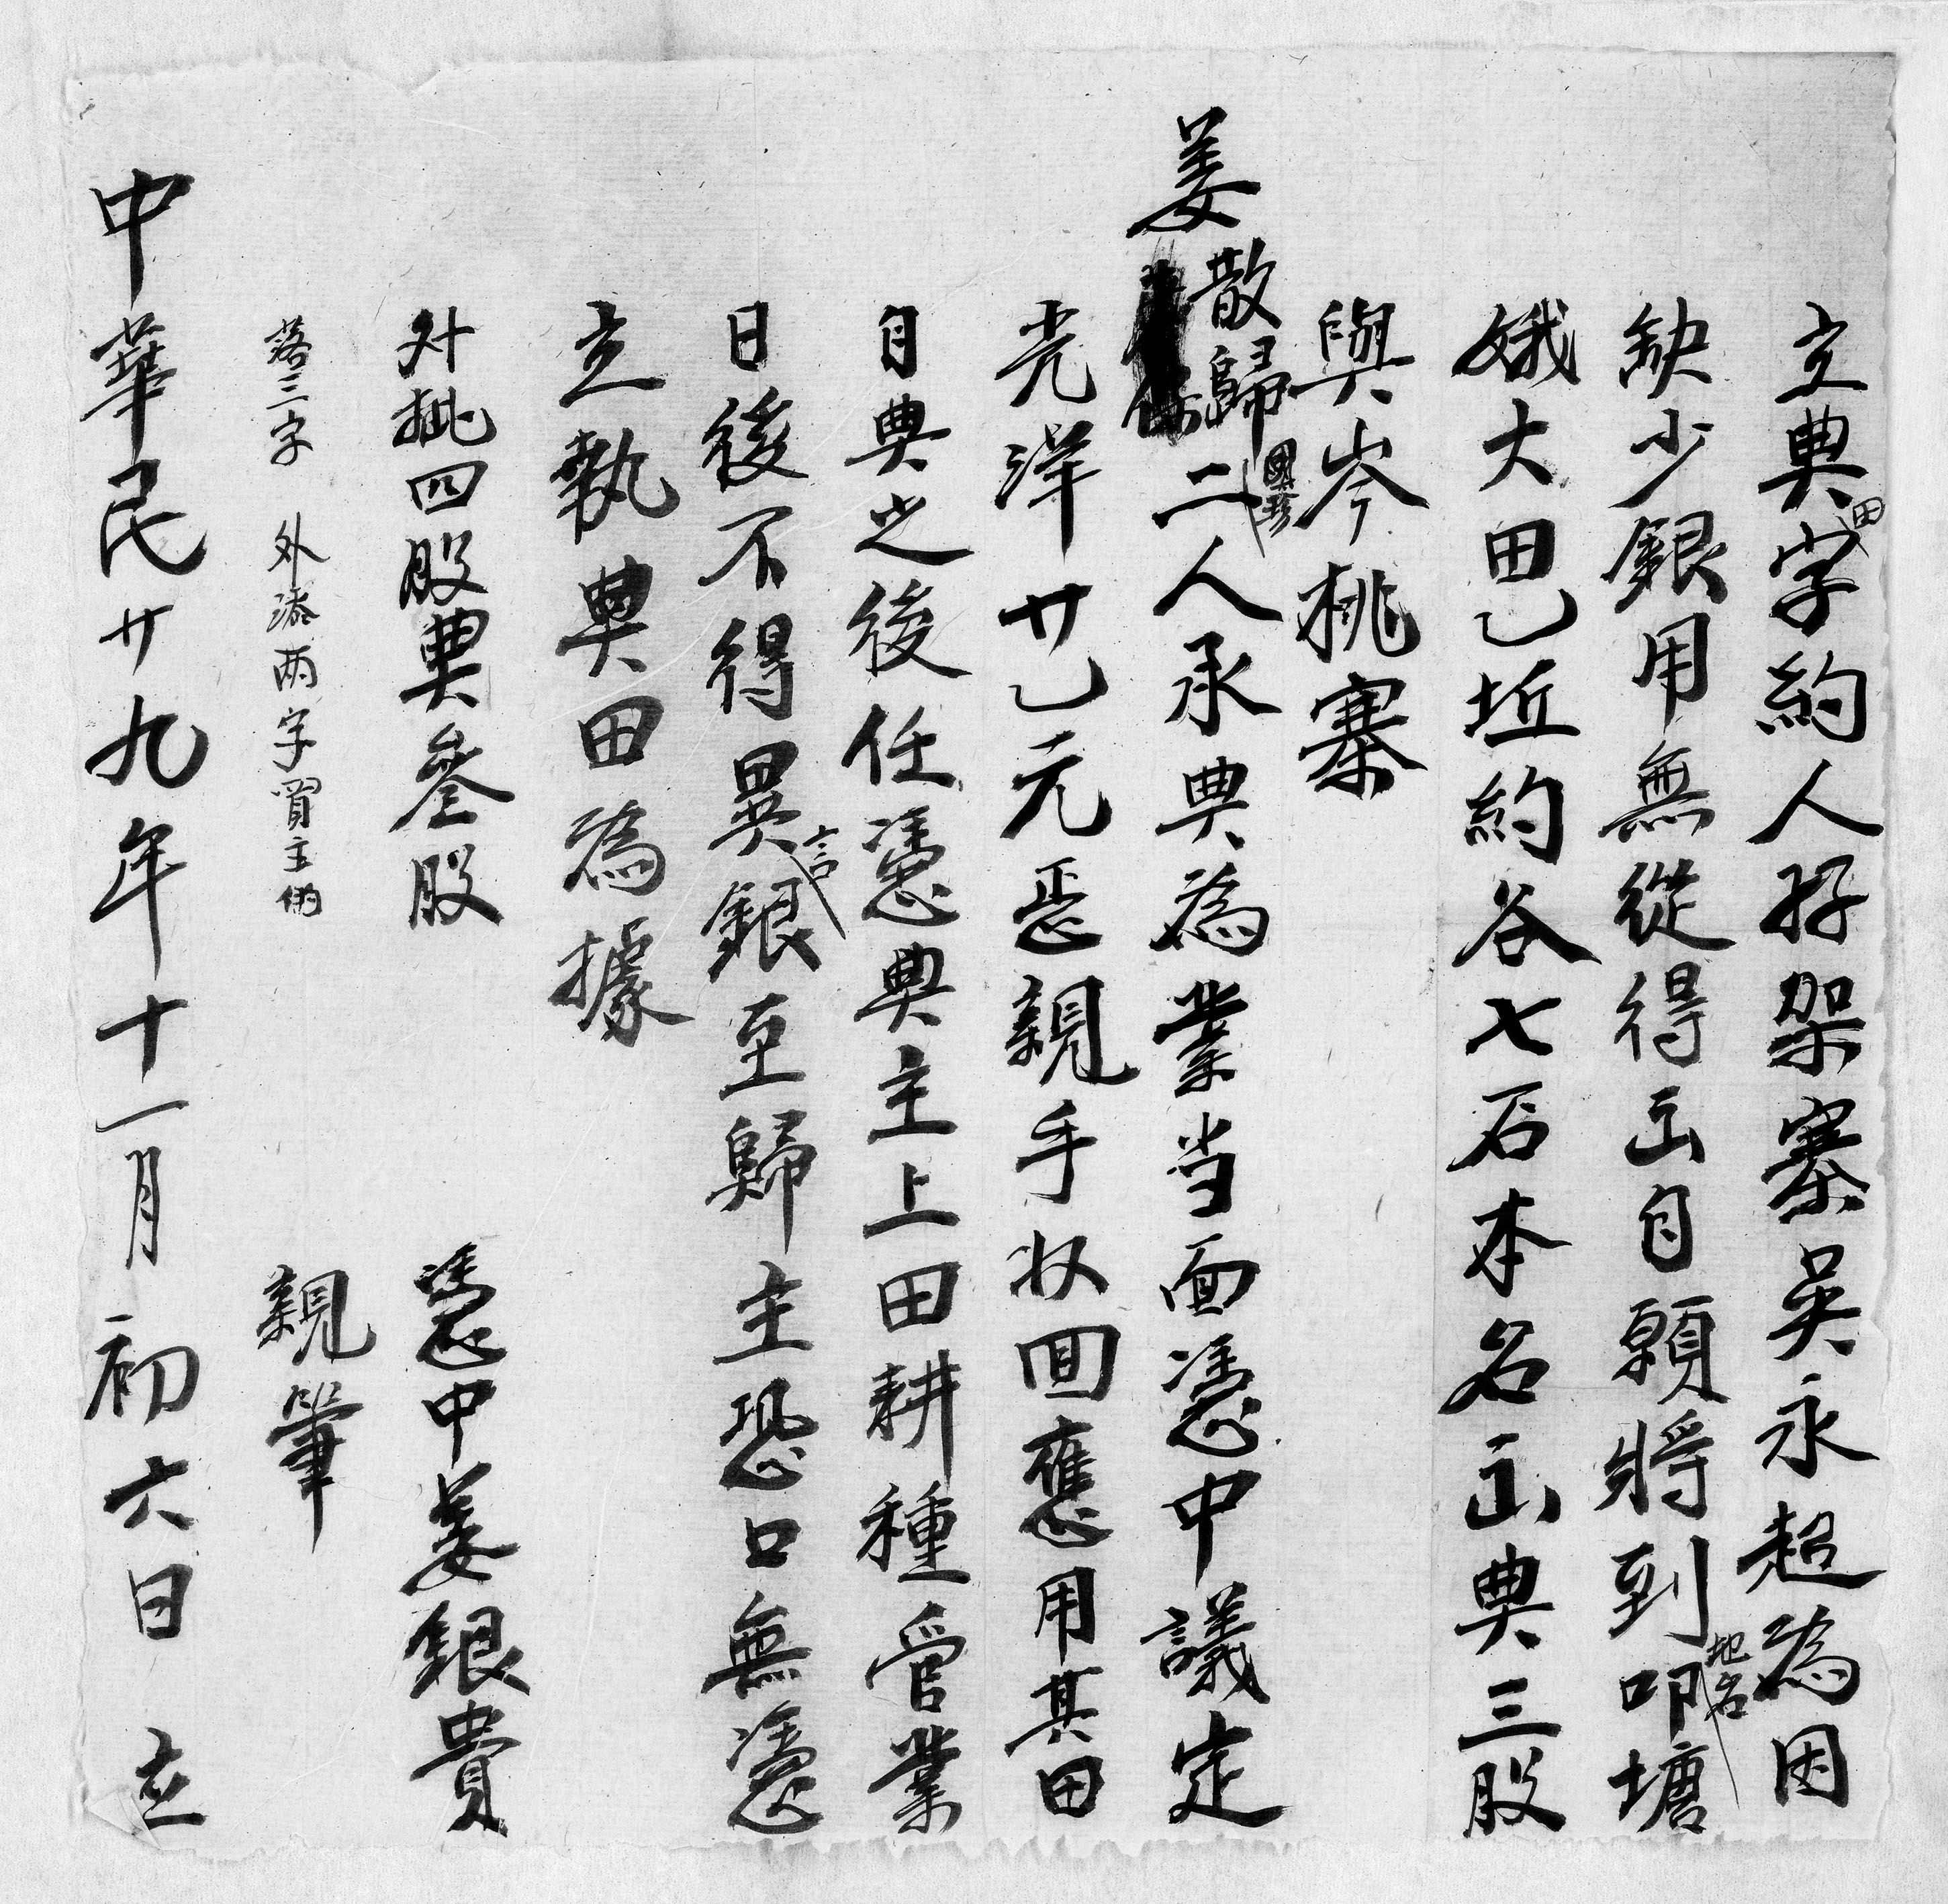 立典田字約人㧱架寨吳永超為因
缺少銀用無從得出自願將到地名叩塘
娥大田乙坵約谷七石本名出典三股
與岑桃寨
姜散歸國珍二人承典為業当面憑中議定
光洋廿乙元惡親手收回應用其田
自典之後任憑典主上田耕種管業
日後不得異言銀至歸主恐口無憑
立執典田為據
外批四股典叁股
憑中姜銀貴
落三字 外添两字買主俩
親筆
中華民廿九年十一月初六日 立